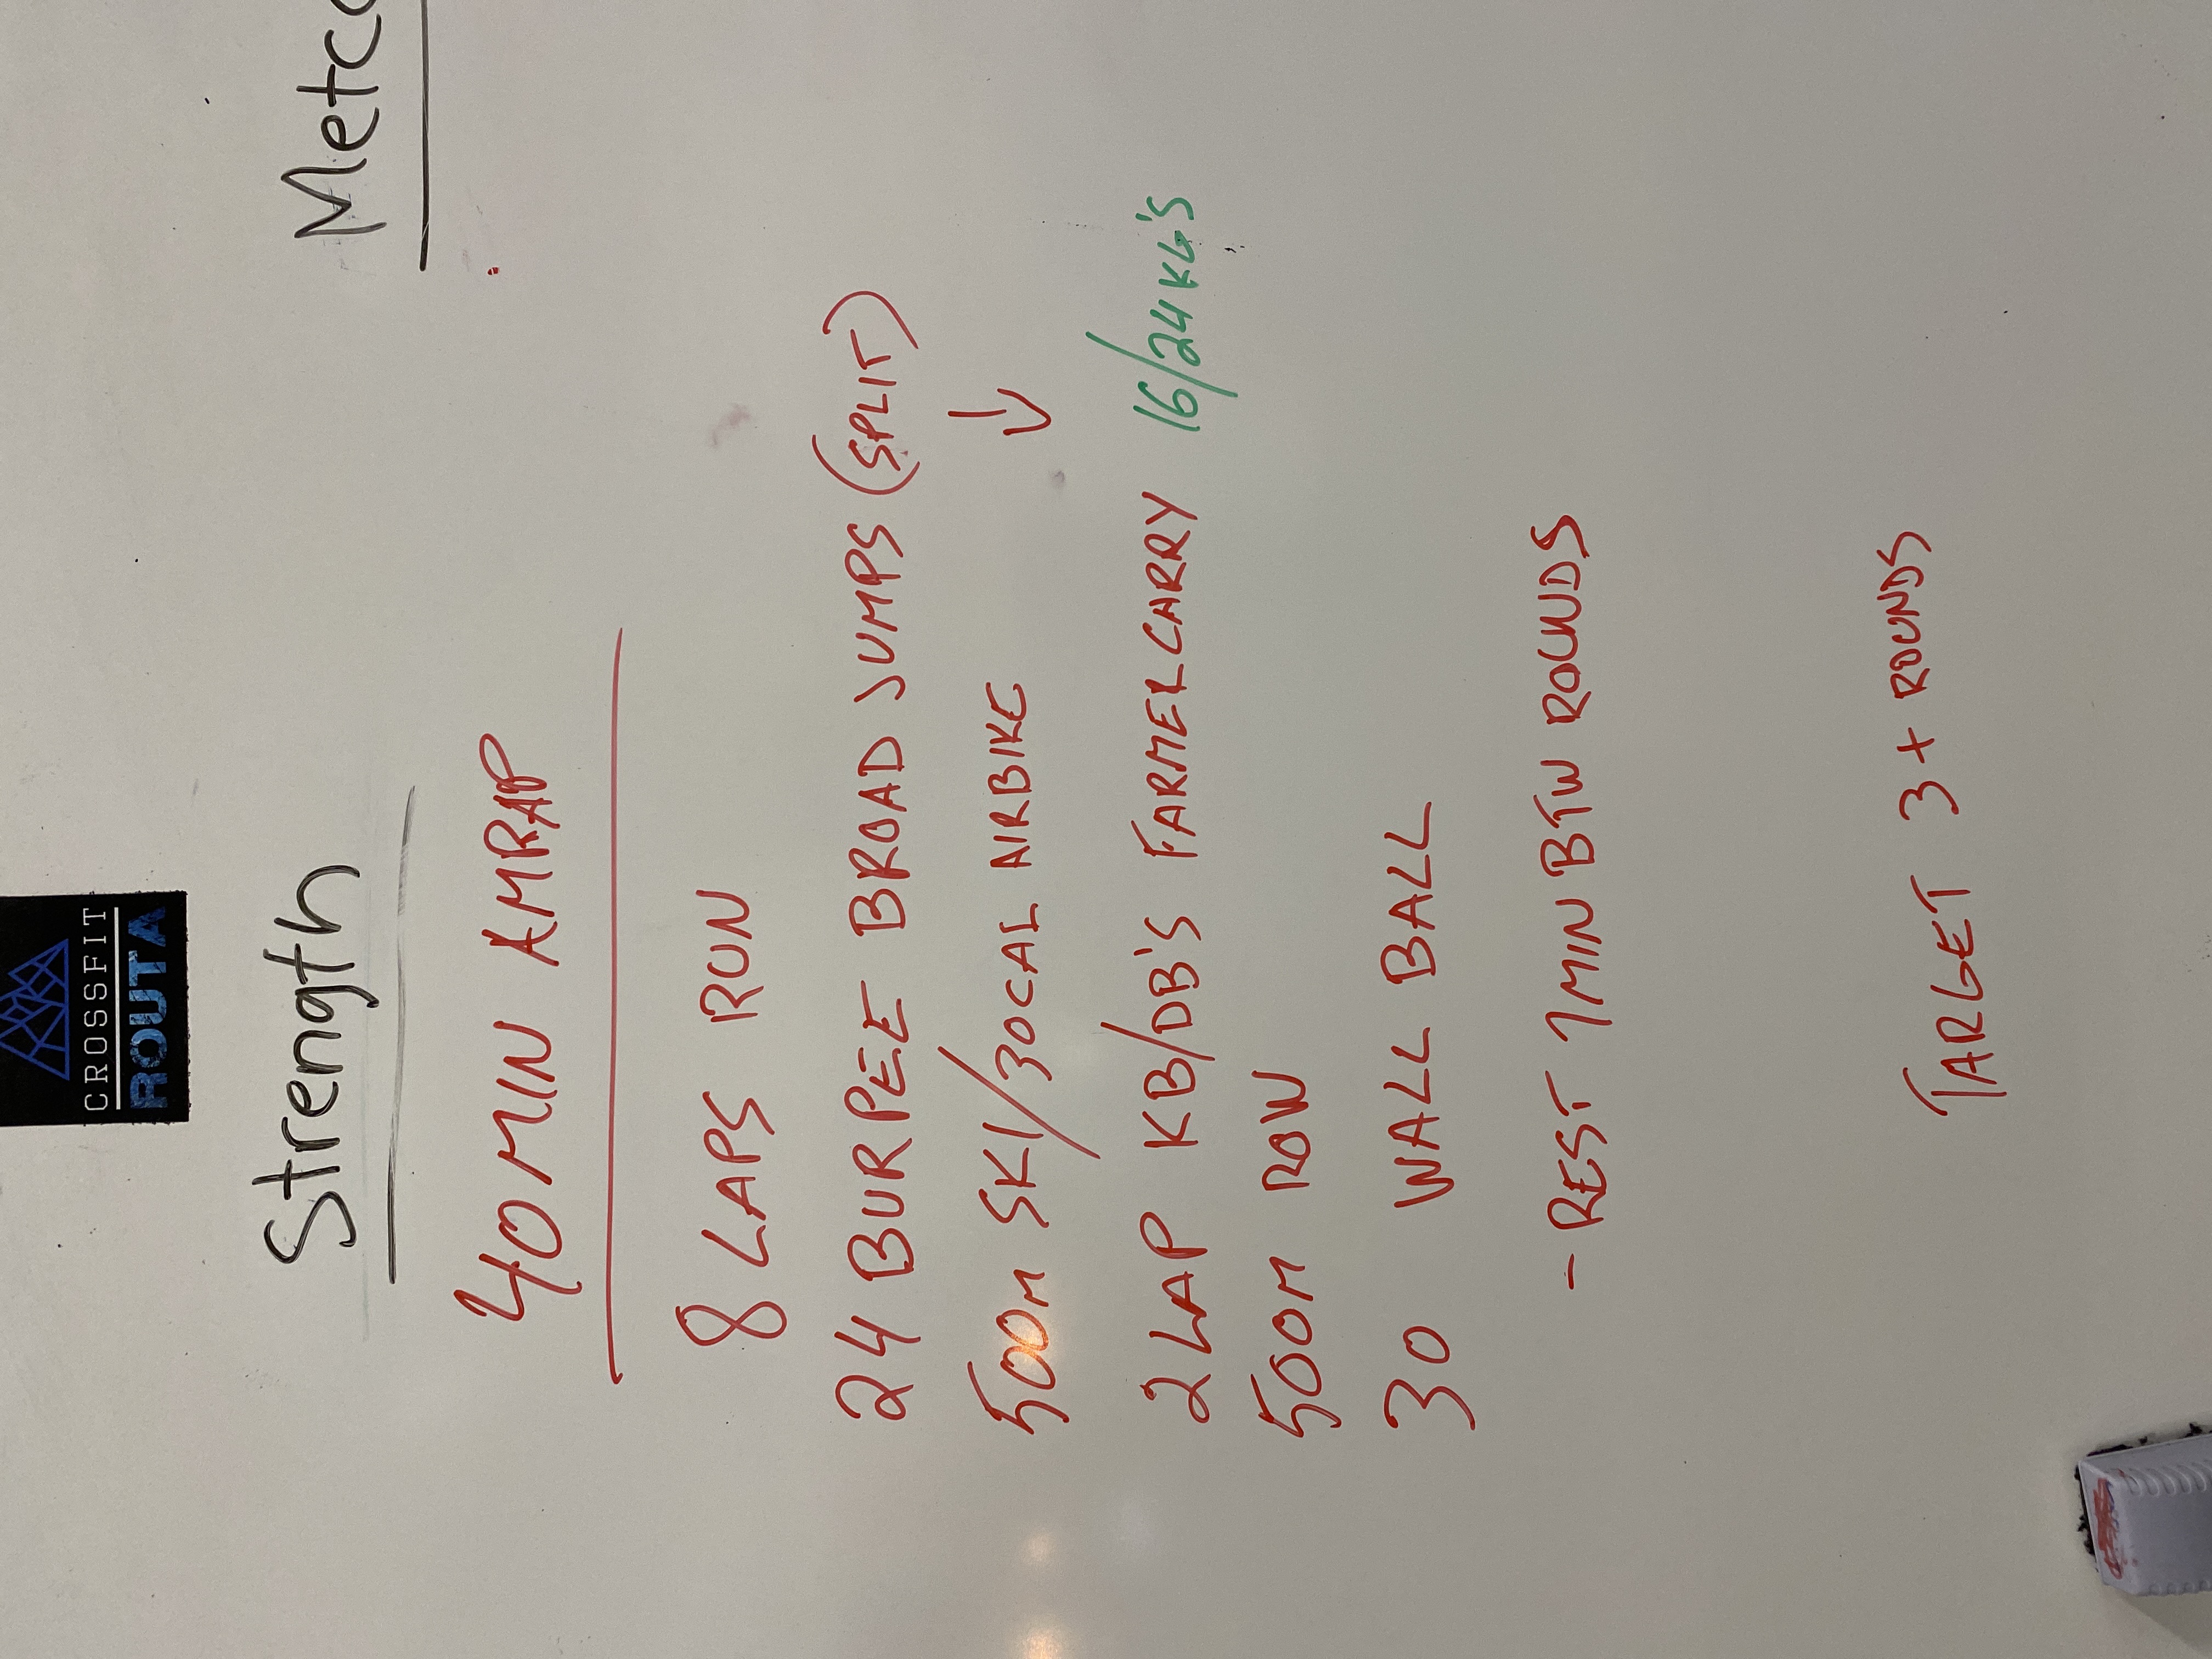 CROSSFIT
ROUTA
Strength
Metc
40 MIN AMRAP
8 LAPS RUN
24 BURPEE BROAD JUMPS (SPLIT)
500M SKI/30CAL AIRBIKE ↓
2 LAP KB/DB'S FARMERCARRY 16/24KG'S
500M ROW
30 WALL BALL
- REST 1MIN BTW ROUNDS
TARGET 3+ ROUNDS